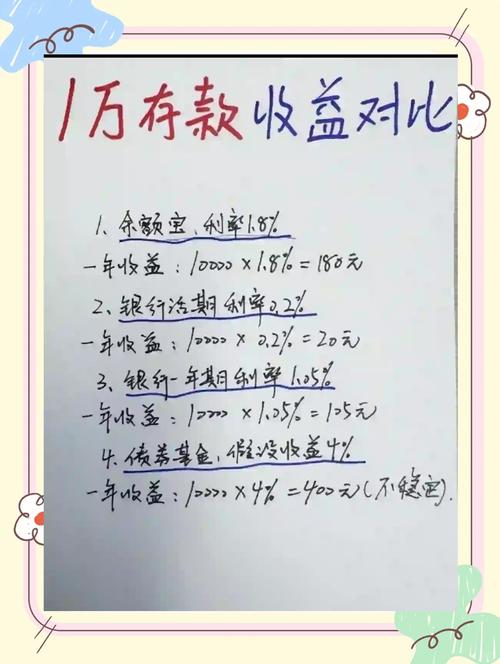 1万存款收益对比
1、余额宝、利率1.8%
一年收益：10000×1.8%=180元
2、银行活期利率0.2%
一年收益：10000×0.2%=20元
3、银行一年期利率1.05%
一年收益：10000×1.05%=105元
4、债券基金，假设收益4%
一年收益：10000×4%=400元(不稳定).